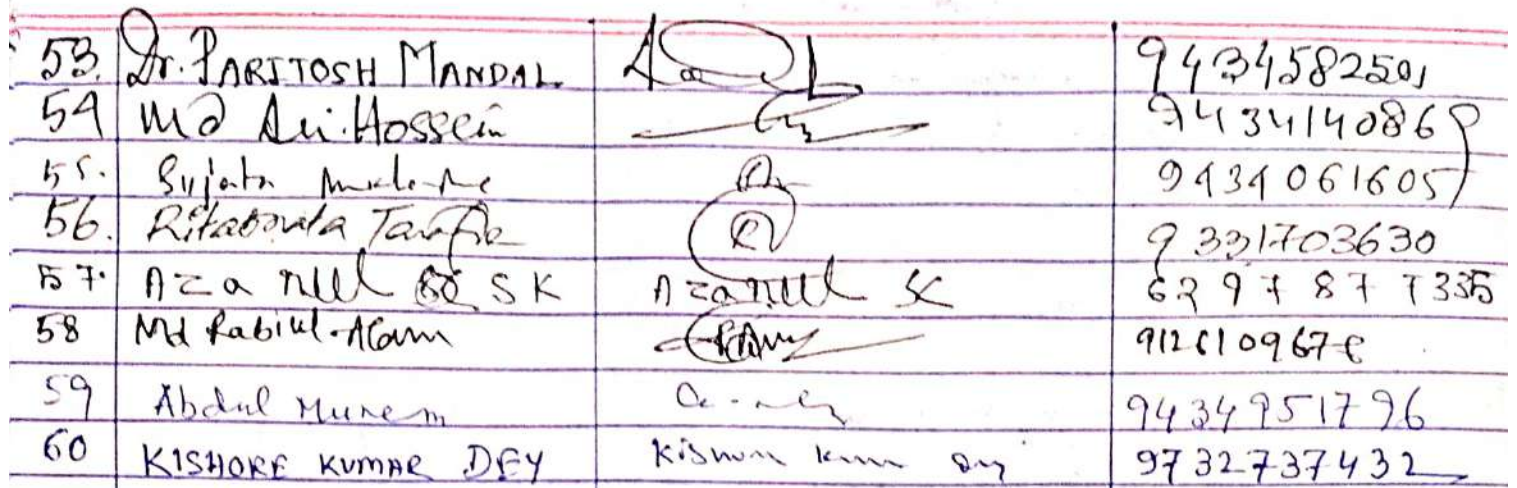 53. Dr. PARITOSH MANDAL 9434582501
54 Md Ali Hossein 9434140869
55. Sujata 9434061605
56. Ritabrata 9331703630
57. Azarul SK Azarul SK 6297877335
58 Md Rabiul Alam
59 Abdul Munem 9434951796
60 KISHORE KUMAR DEY Kishore Kumar Dey 9732737432